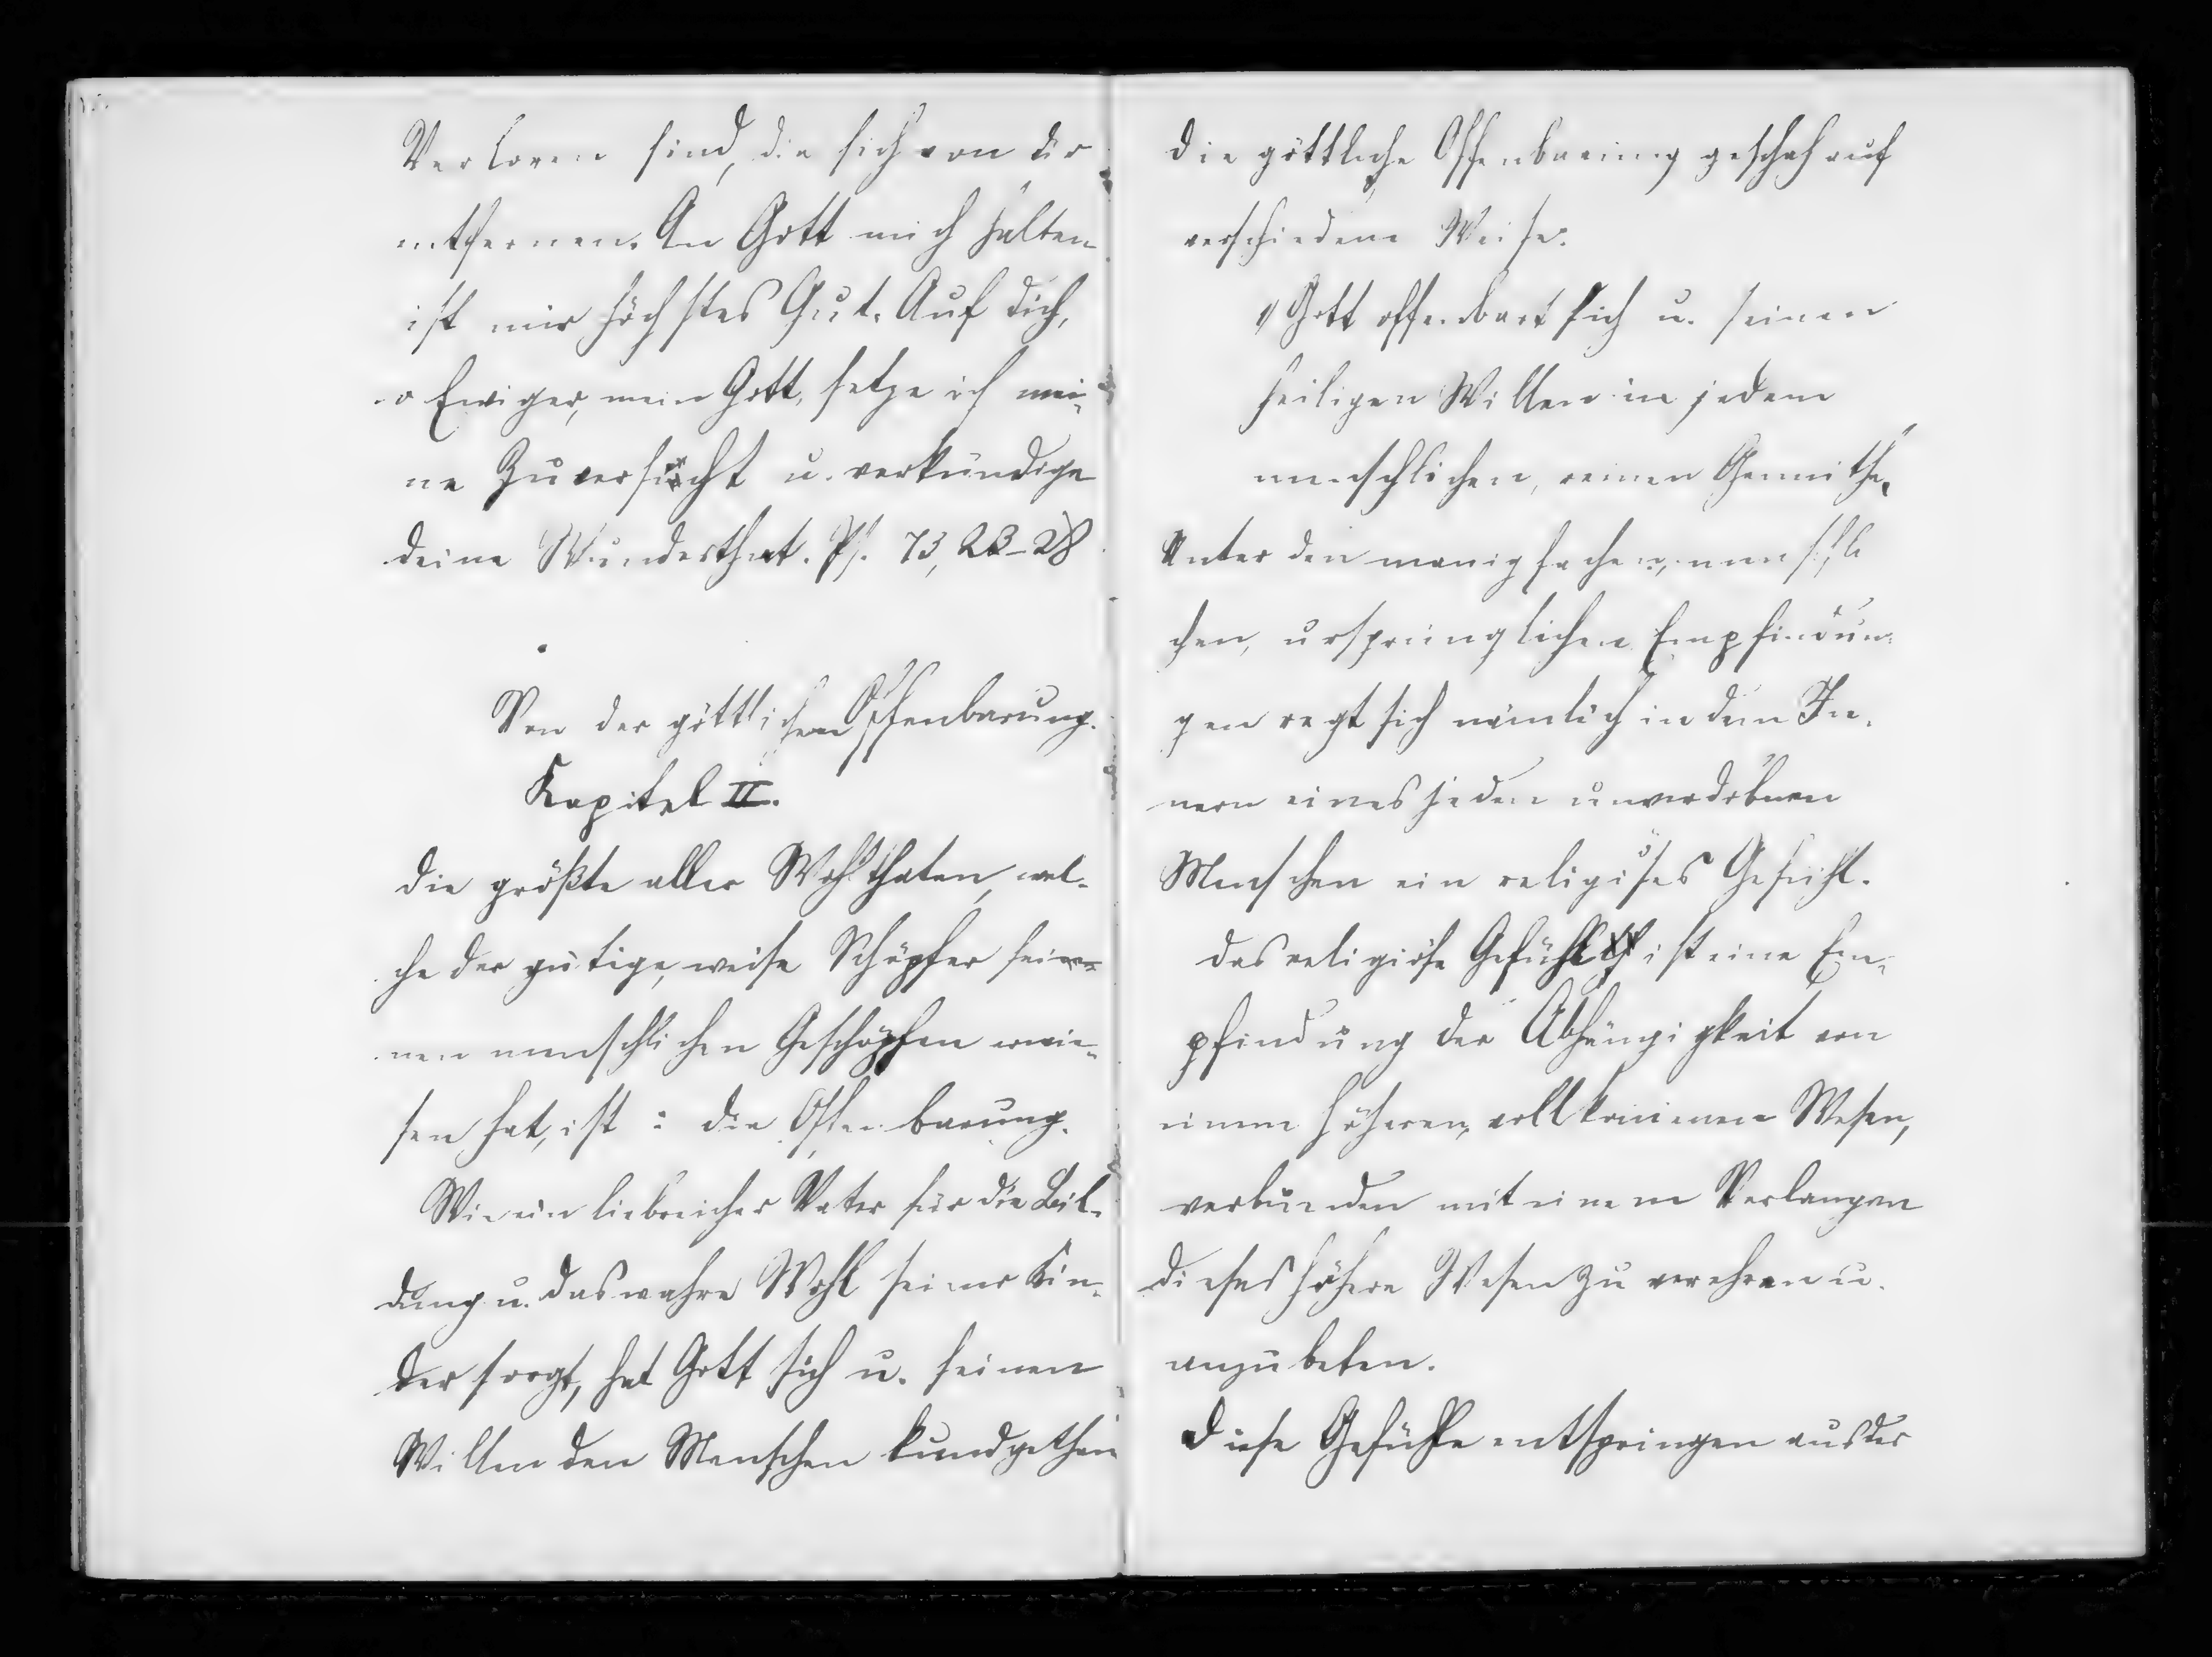 Verloren sind, die sich von dir
entfernen. An Gott mich halten
ist mir höchstes Gut. Auf dich,
o Ewiger, mein Gott, setze ich mei-
ne Zuversicht u. verkündige
deine Wunderthat. Ps. 73, 23-28
Von der göttlichen Offenbarung.
Kapitel II.
Die größte aller Wohlthaten, wel-
che der gütige, weise Schöpfer sei-
nen menschlichen Geschöpfen erwie-
sen hat, ist: die Offenbarung.
Wie ein liebreicher Vater für die Bil-
dung u. das wahre Wohl seiner Kin-
der sorgt, hat Gott sich u. seinen
Willen den Menschen kundgethan
Die göttliche Offenbarung geschah auf
verschiedene Weise.
1) Gott offenbart sich u. seinen
heiligen Willen in jedem
menschlichen, reinen Gemüthe.
Unter den manigfachen, menschli
chen, ursprünglichen Empfindun-
gen regt sich nämlich in dem In-
nern eines jeden unverdorbnen
Menschen ein religiöses Gefühl.
Das religiöse Gefühl ist eine Em-
pfindung der Abhängigkeit von
einem höheren, vollkommenen Wesen,
verbunden mit einem Verlangen
dieses höhere Wesen zu verehren u.
anzubeten.
Diese Gefühle entspringen aus der